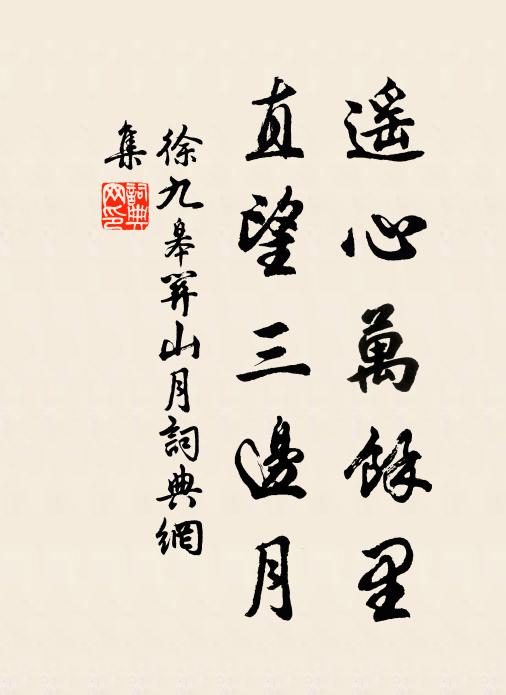 遥心萬餘里
直望三邊月
徐九皋関山月詞典網
集
詞典网印